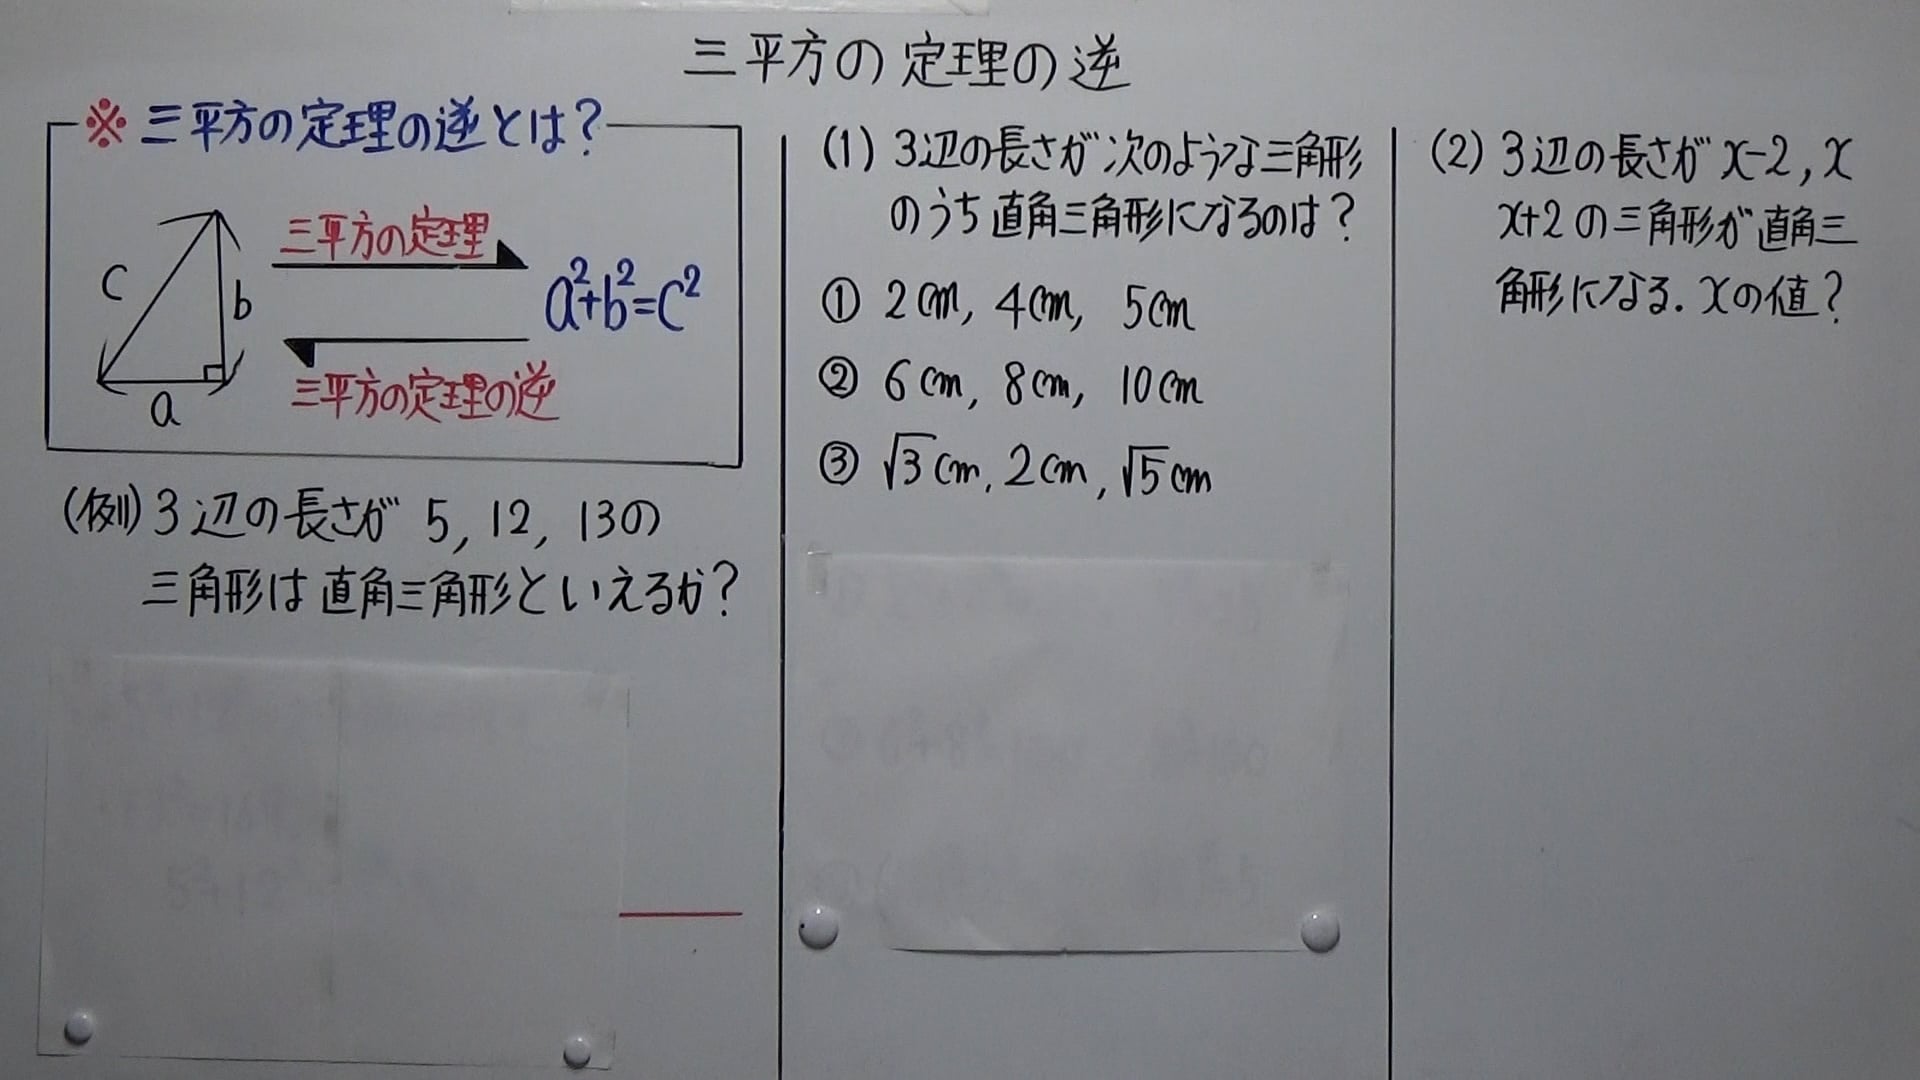 三平方の定理の逆
※三平方の定理の逆とは？
三平方の定理
c
b
a
a²+b²=c²
三平方の定理の逆
(例) 3辺の長さが 5, 12, 13の
三角形は直角三角形といえるか？
(1) 3辺の長さが次のような三角形
のうち直角三角形になるのは？
① 2cm, 4cm, 5cm
② 6cm, 8cm, 10cm
③ √3cm, 2cm, √5cm
(2) 3辺の長さが x-2, x
x+2の三角形が直角三
角形になる. xの値？